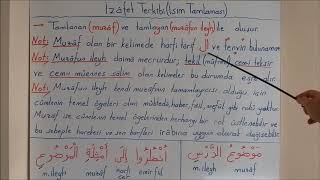 İzâfet Terkibi (İsim Tamlaması)
→ Tamlanan (muzâf) ve tamlayan (muzâfun ileyh) ile oluşur.
Not: Muzâf olan bir kelimede harfi tarif ال ve tenvin bulunamaz
Not: Muzâfun ileyh daima mecrurdur; tekil (müfred), cemi teksir
ve cemi müennes salim olan kelimeler bu durumda esre alır.
Not: Muzâfun ileyh kendi muzâfının tamamlayıcısı olduğu için
cümlenin temel ögeleri olan mübteda, haber, fâil, mef'ul gibi rolü yoktur.
Muzâf ise cümlenin temel ögelerinden herhangi bir rol üstlenebilir ve
bu sebeple harekesi ve son harfleri irâbına uygun olarak değişebilir.
مَوْضُوعُ الدَّرْسِ
اُنْظُرُوا إِلَى أَمْثِلَةِ الْمَوْضُوعِ
m.ileyh muzâf
m.ileyh muzâf harfi cer emir fiil